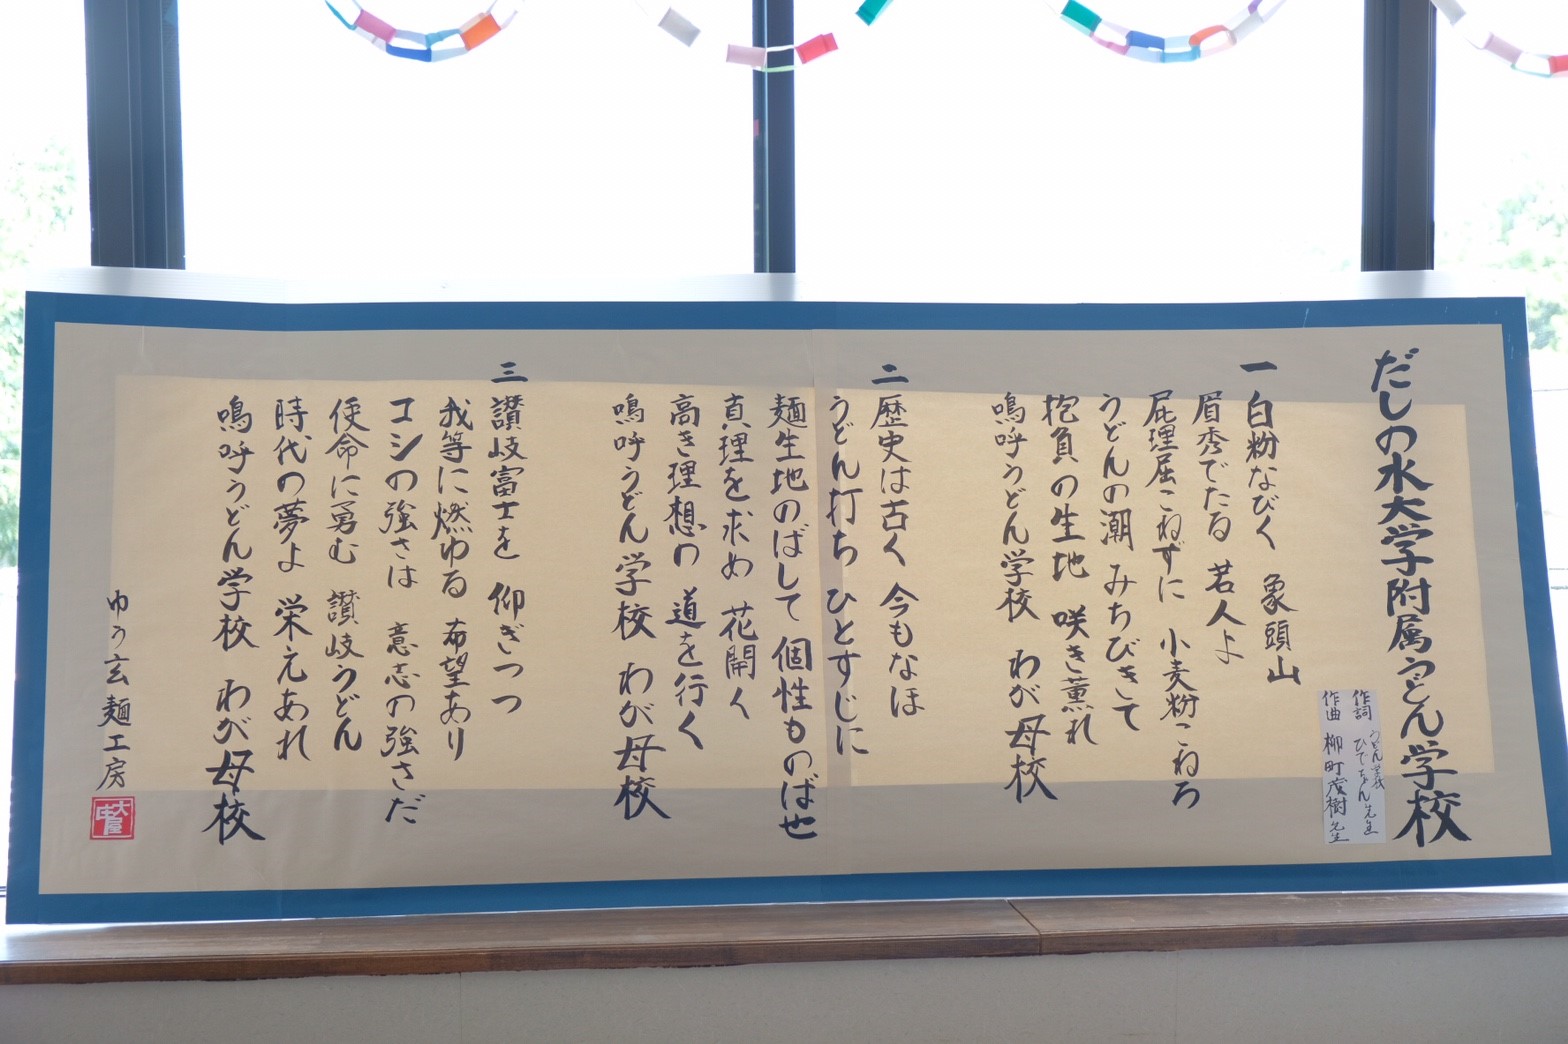 だしの水大学附属うどん学校
作詞 うどん学我 ひでちゃん先生
作曲 柳町茂樹先生
一 白粉なびく 象頭山
眉秀でたる 若人よ
屁理屈こねずに 小麦粉こねろ
うどんの潮 みちびきて
抱負の生地 咲き薫れ
鳴呼うどん学校 わが母校
二 歴史は古く 今もなほ
うどん打ち ひとすじに
麺生地のばして 個性ものばせ
真理を求め 花開く
高き理想の 道を行く
鳴呼うどん学校 わが母校
三 讃岐富士を 仰ぎつつ
我等に燃ゆる 希望あり
コシの強さは 意志の強さだ
使命に勇む 讃岐うどん
時代の夢よ 栄えあれ
鳴呼うどん学校 わが母校
ゆう玄麺工房